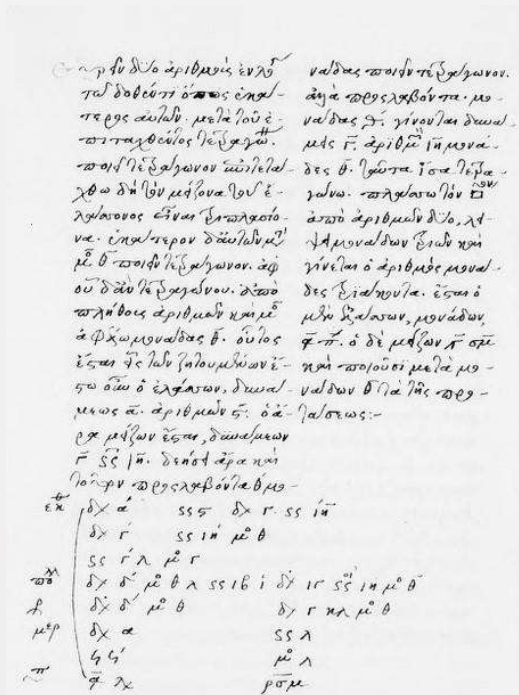 εὑρεῖν δύο ἀριθμοὺς ἐν λόγῳ
τῷ δοθέντι ὅπως ἑκά-
τερος αὐτῶν. μετὰ τοῦ ἐ-
πιταχθέντος τετραγών
ποιῇ τετράγωνον. ἐπιτετά-
χθω δὴ τὸν μείζονα τοῦ ἐ-
λάσσονος εἶναι τριπλασίο-
να. ἑκάτερον δ' αὐτῶν μετ
μο θ ποιεῖν τετράγωνον. ἀφ'
οὗ δ' ἂν τετραγώνου. ἀπὸ
πλήθους ἀριθμῶν καὶ μο
μονάδας θ. οὗτος
ἔσται εἷς τῶν ζητουμένων ἔ-
στω οὖν ὁ ἐλάσσων, δυνά-
μεως α. ἀριθμῶν ς: ὁ ἄ-
ρα μείζων ἔσται, δυνάμεων
γ ςς ιη. δεήσει ἄρα καὶ
τοῦτον προσλαβόντα θ μο-
νάδας ποιεῖν τετράγωνον.
ἀλλὰ προσλαβόντα. μο-
νάδας θ. γίνονται δυνά-
μεις γ. ἀριθμοὶ ιη μονά-
δες θ. ταῦτα ἴσα τετρα-
γώνῳ. πλάσσω τὸν □ον
ἀπὸ ἀριθμῶν δύο, λεί-
ψει μονάδων τριῶν καὶ
γίνεται ὁ ἀριθμὸς μονά-
δες τριάκοντα. ἔσται ὁ
μὲν ἐλάσσων, μονάδων,
απ. ὁ δὲ μείζων γ σμ
καὶ ποιοῦσι μετὰ μο-
νάδων θ τὰ τῆς προ-
τάσεως:-
ἐκθ δχ α ςς ς δχ γ. ςς ιη
δχ γ ςς ιη μο θ
ςς γ λ μο γ
πολ δχ δ μο θ λ ςς ιβ ἴ δχ ιγ ςς ιη μο θ
δχ δ μο θ δχ γ κλ μο θ
μερ δχ α ςς λ
μο λ
π